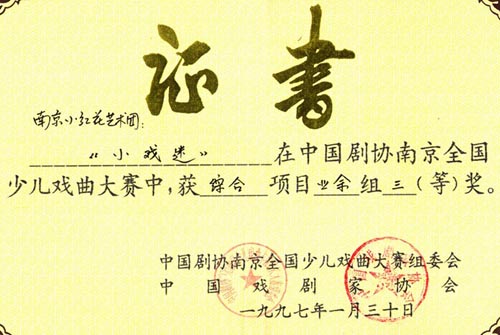 证书
南京小红花艺术团:
“小戏迷”在中国剧协南京全国
少儿戏曲大赛中,获综合项目业余组三(等)奖。
中国剧协南京全国少儿戏曲大赛组委会
中国戏剧家协会
一九九七年一月三十日